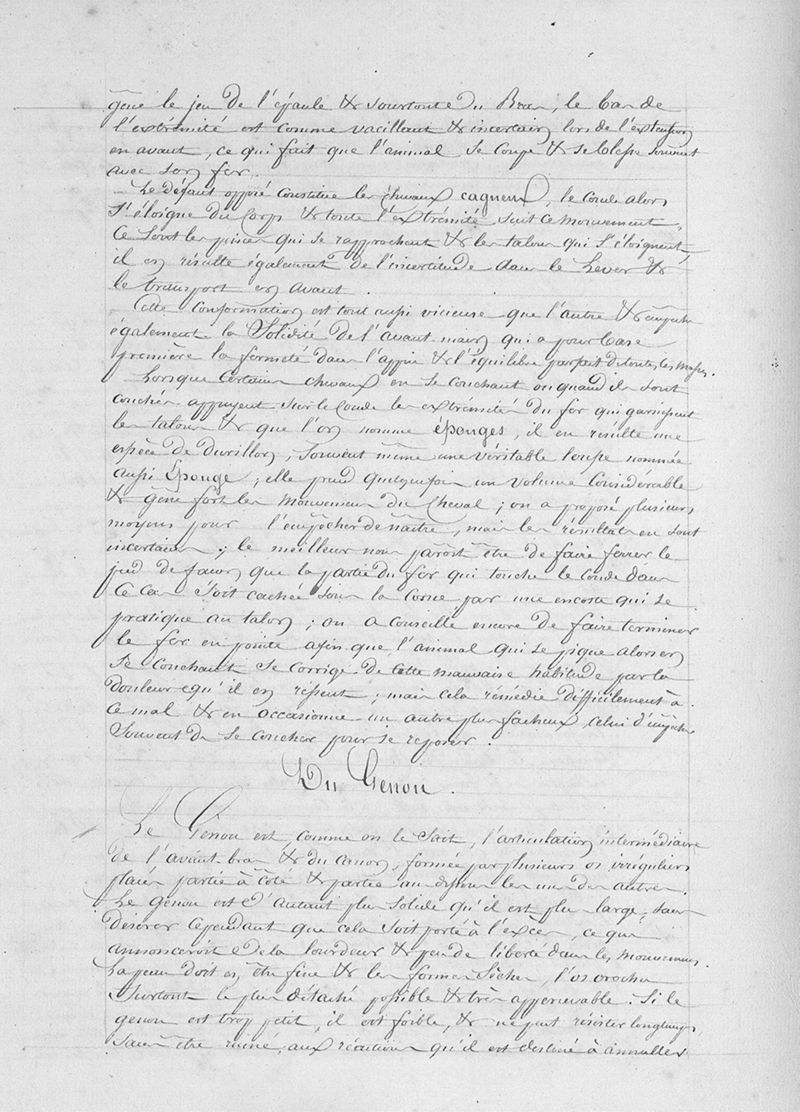 gêne le jeu de l'épaule & surtout du Bras, le bas de
l'extrémité est comme vacillant & incertain lors de l'extension
en avant, ce qui fait que l'animal se coupe & se blesse souvent
avec son fer.
Le défaut opposé constitue les chevaux cagneux, le coude alors
s'éloigne du corps & toute l'extrémité suit ce mouvement,
ce sont les pinces qui se rapprochent & les talons qui s'éloignent,
il en résulte également de l'incertitude dans le Lever &
le transport en avant.
Cette conformation est tout aussi vicieuse que l'autre &
également la solidité de l'avant main qui a pour base
première la fermeté dans l'appui & l'équilibre parfait de toutes les masses.
Lorsque certains chevaux en se couchant ou quand ils sont
couchés appuyent sur le coude les extrémités du fer qui garnissent
les talons & que l'on nomme éponges, il en résulte une
espèce de durillon, souvent même une véritable loupe nommée
aussi Éponge; elle prend quelquefois un volume considérable
& gêne fort les mouvemens du cheval; on a proposé plusieurs
moyens pour l'empêcher de naître, mais les résultats en sont
incertains; le meilleur nous paroît être de faire ferrer le
pied de façon que la partie du fer qui touche le coude dans
ce cas soit cachée sous la corne par une encoste qui se
pratique au talon; on a conseillé encore de faire terminer
le fer en pointe afin que l'animal qui se pique alors en
se couchant se corrige de cette mauvaise habitude par la
douleur qu'il en ressent; mais cela remédie difficilement à
ce mal & en occasionne un autre plus facheux, celui d'empêcher
souvent de se coucher pour se reposer.
Du Genou.
Le Genou est, comme on le sait, l'articulation intermédiaire
de l'avant bras & du canon, formée par plusieurs os irréguliers
placés partie à côté & partie au dessus les uns des autres.
Le genou est d'autant plus solide qu'il est plus large, sans
désirer cependant que cela soit porté à l'excès, ce qui
annonceroit de la lourdeur & peu de liberté dans les mouvemens.
La peau doit en être fine & les formes sèches, l'os crochu
surtout le plus détaché possible & très appercevable. Si le
genou est trop petit, il est foible, & ne peut résister longtemps,
sans être ruiné, aux réactions qu'il est destiné à annuller